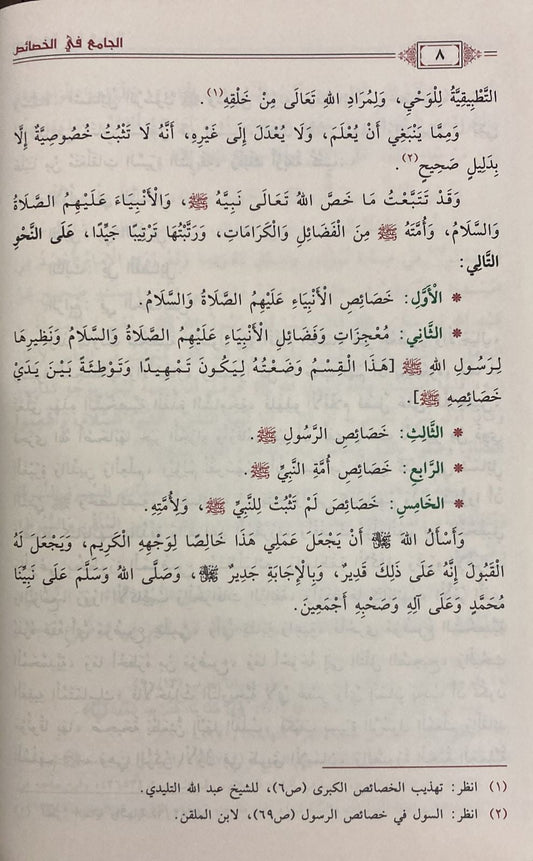 الجامع في الخصائص
٨
التَّطْبِيقِيَّةُ لِلْوَحْيِ، وَلِمُرَادِ اللهِ تَعَالَى مِنْ خَلْقِهِ(١).
وَمِمَّا يَنْبَغِي أَنْ يُعْلَمَ، وَلَا يُعْدَلَ إِلَى غَيْرِهِ، أَنَّهُ لَا تَثْبُتُ خُصُوصِيَّةٌ إِلَّا
بِدَلِيلٍ صَحِيحٍ(٢).
وَقَدْ تَتَبَّعْتُ مَا خَصَّ اللهُ تَعَالَى نَبِيَّهُ ﷺ، وَالْأَنْبِيَاءَ عَلَيْهِمُ الصَّلَاةُ
وَالسَّلَامُ، وَأُمَّتَهُ ﷺ مِنَ الْفَضَائِلِ وَالْكَرَامَاتِ، وَرَتَّبْتُهَا تَرْتِيبًا جَيِّدًا، عَلَى النَّحْوِ
التَّالِي:
* الْأَوَّلِ: خَصَائِصِ الْأَنْبِيَاءِ عَلَيْهِمُ الصَّلَاةُ وَالسَّلَامُ.
* الثَّانِي: مُعْجِزَاتِ وَفَضَائِلِ الْأَنْبِيَاءِ عَلَيْهِمُ الصَّلَاةُ وَالسَّلَامُ وَنَظِيرِهَا
لِرَسُولِ اللهِ ﷺ [هَذَا الْقِسْمُ وَضَعْتُهُ لِيَكُونَ تَمْهِيدًا وَتَوْطِئَةً بَيْنَ يَدَيْ
خَصَائِصِهِ ﷺ].
* الثَّالِثِ: خَصَائِصِ الرَّسُولِ ﷺ.
* الرَّابِعِ: خَصَائِصِ أُمَّةِ النَّبِيِّ ﷺ.
* الْخَامِسِ: خَصَائِصَ لَمْ تَثْبُتْ لِلنَّبِيِّ ﷺ، وَلِأُمَّتِهِ.
وَأَسْأَلُ اللهَ ﷻ أَنْ يَجْعَلَ عَمَلِي هَذَا خَالِصًا لِوَجْهِهِ الْكَرِيمِ، وَيَجْعَلَ لَهُ
الْقَبُولَ إِنَّهُ عَلَى ذَلِكَ قَدِيرٌ، وَبِالْإِجَابَةِ جَدِيرٌ ﷻ، وَصَلَّى اللهُ وَسَلَّمَ عَلَى نَبِيِّنَا
مُحَمَّدٍ وَعَلَى آلِهِ وَصَحْبِهِ أَجْمَعِينَ.
(١) انظر: تهذيب الخصائص الكبرى (ص٦)، للشيخ عبد الله التليدي.
(٢) انظر: السول في خصائص الرسول (ص٦٩)، لابن الملقن.